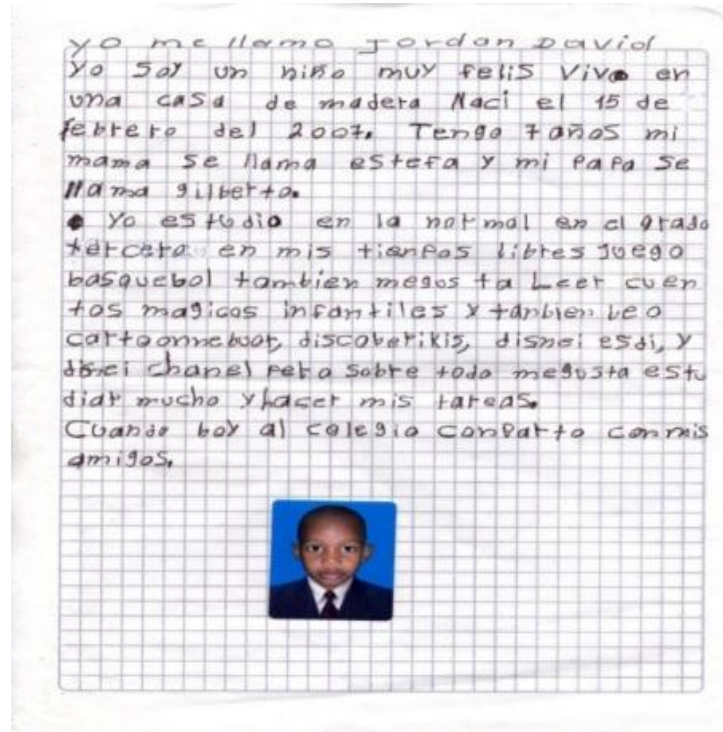 yo me llamo Jordan David
Yo soy un niño muy felis Vivo en
una casa de madera Naci el 15 de
febrero del 2007. Tengo 7 años mi
mama se llama estefa y mi papa se
llama gilberto.
Yo estudio en la normal en el grado
tercero en mis tienpos libres juego
basquebol tambien megus ta Leer cuen
tos magicos infantiles y tanbien beo
cartoonnebuor, discoberikis, disnei esdi, y
disnei chanel pero sobre todo megusta estu
diar mucho y hacer mis tareas.
Cuando boy al colegio conparto con mis
amigos.